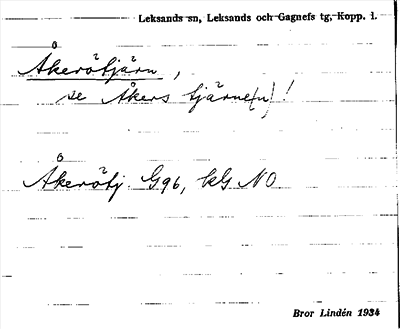 Leksands sn, Leksands och Gagnefs tg, Kopp. l.
Åkerötjärn,
se Åkers tjärne(n)!
Åkerötj. G96, kG NO
Bror Lindén 1934